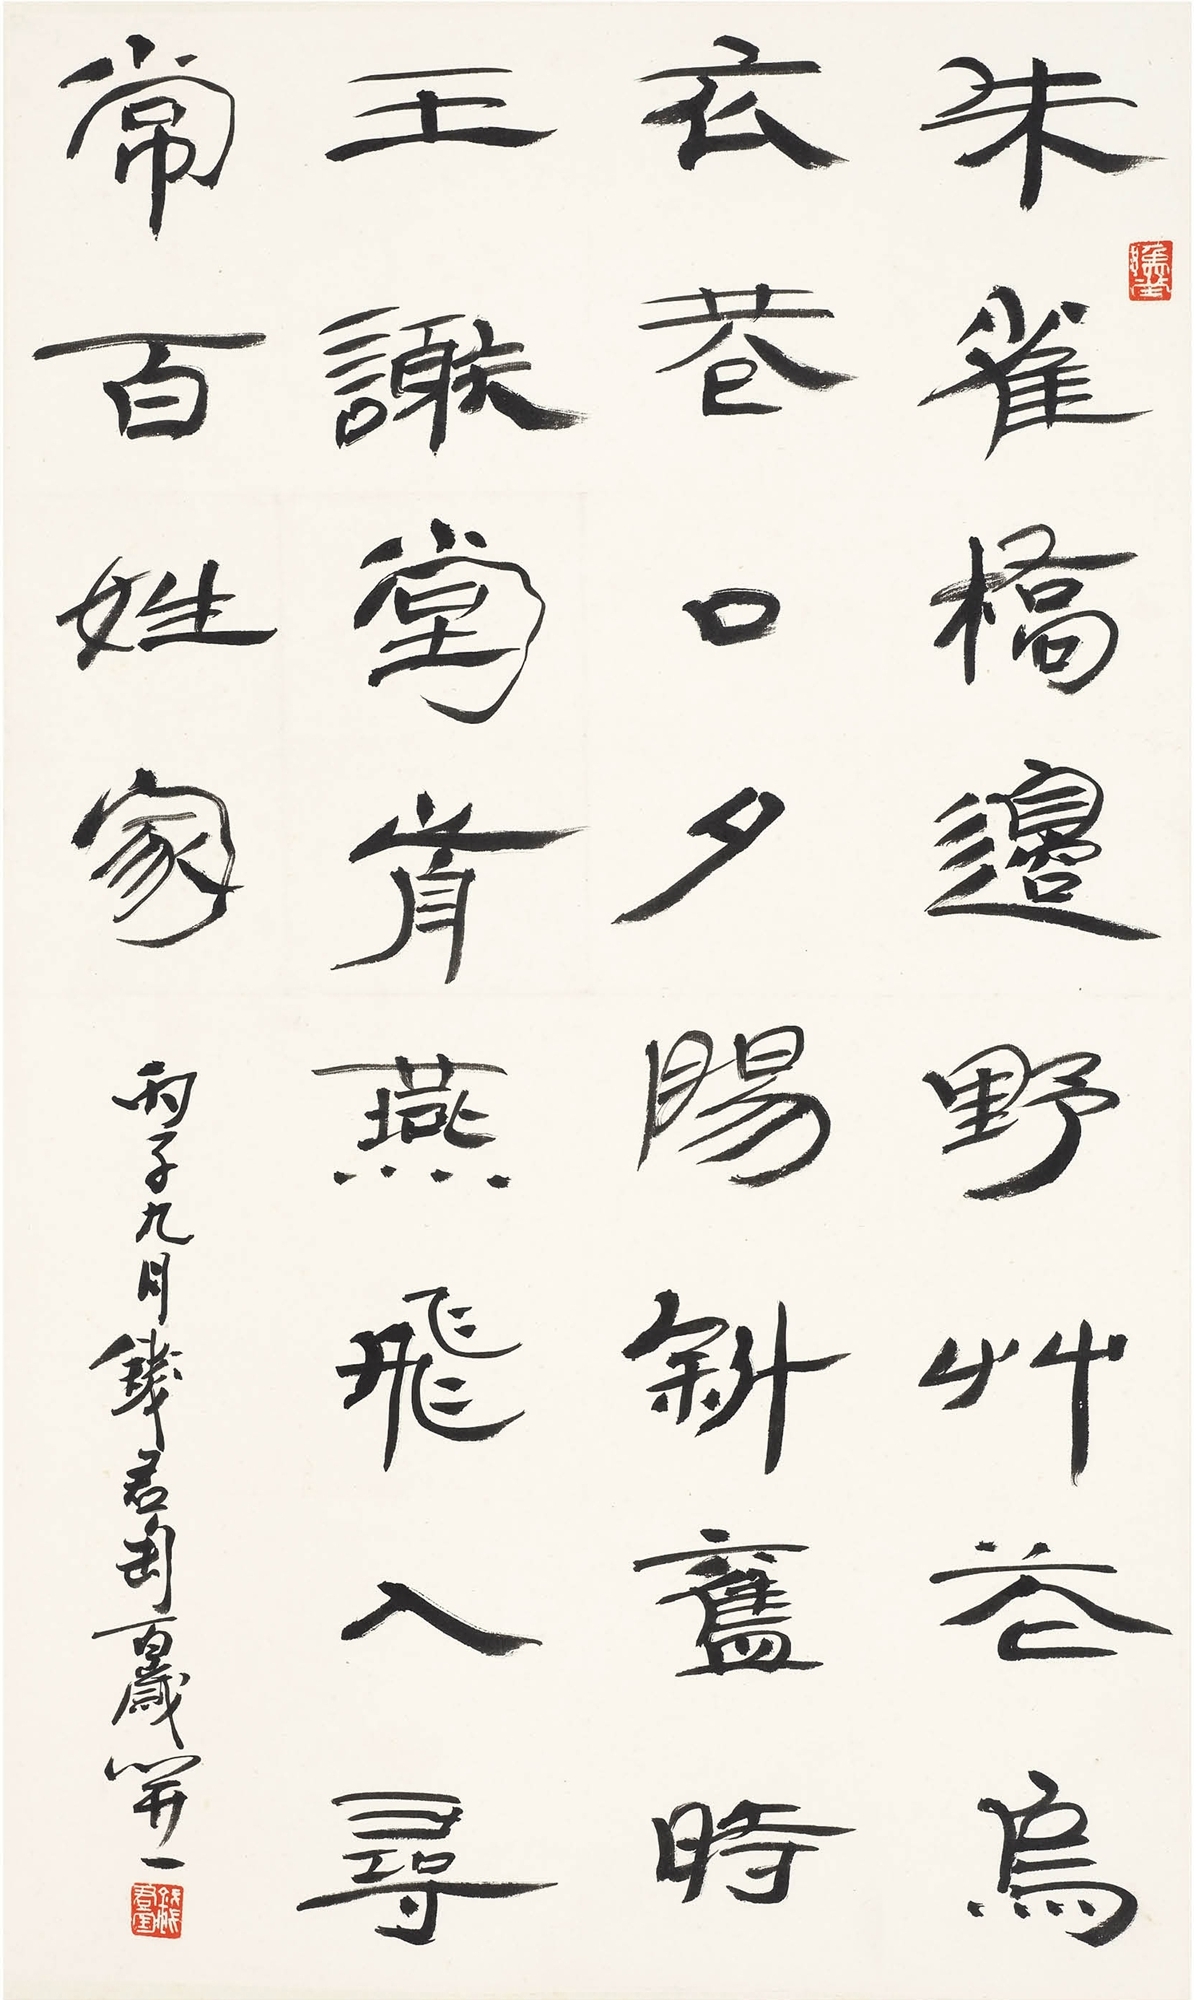 朱雀橋邊野艸花烏
衣巷口夕陽斜舊時
王謝堂前燕飛入尋
常百姓家
丙子九月錢君匋百歲開一